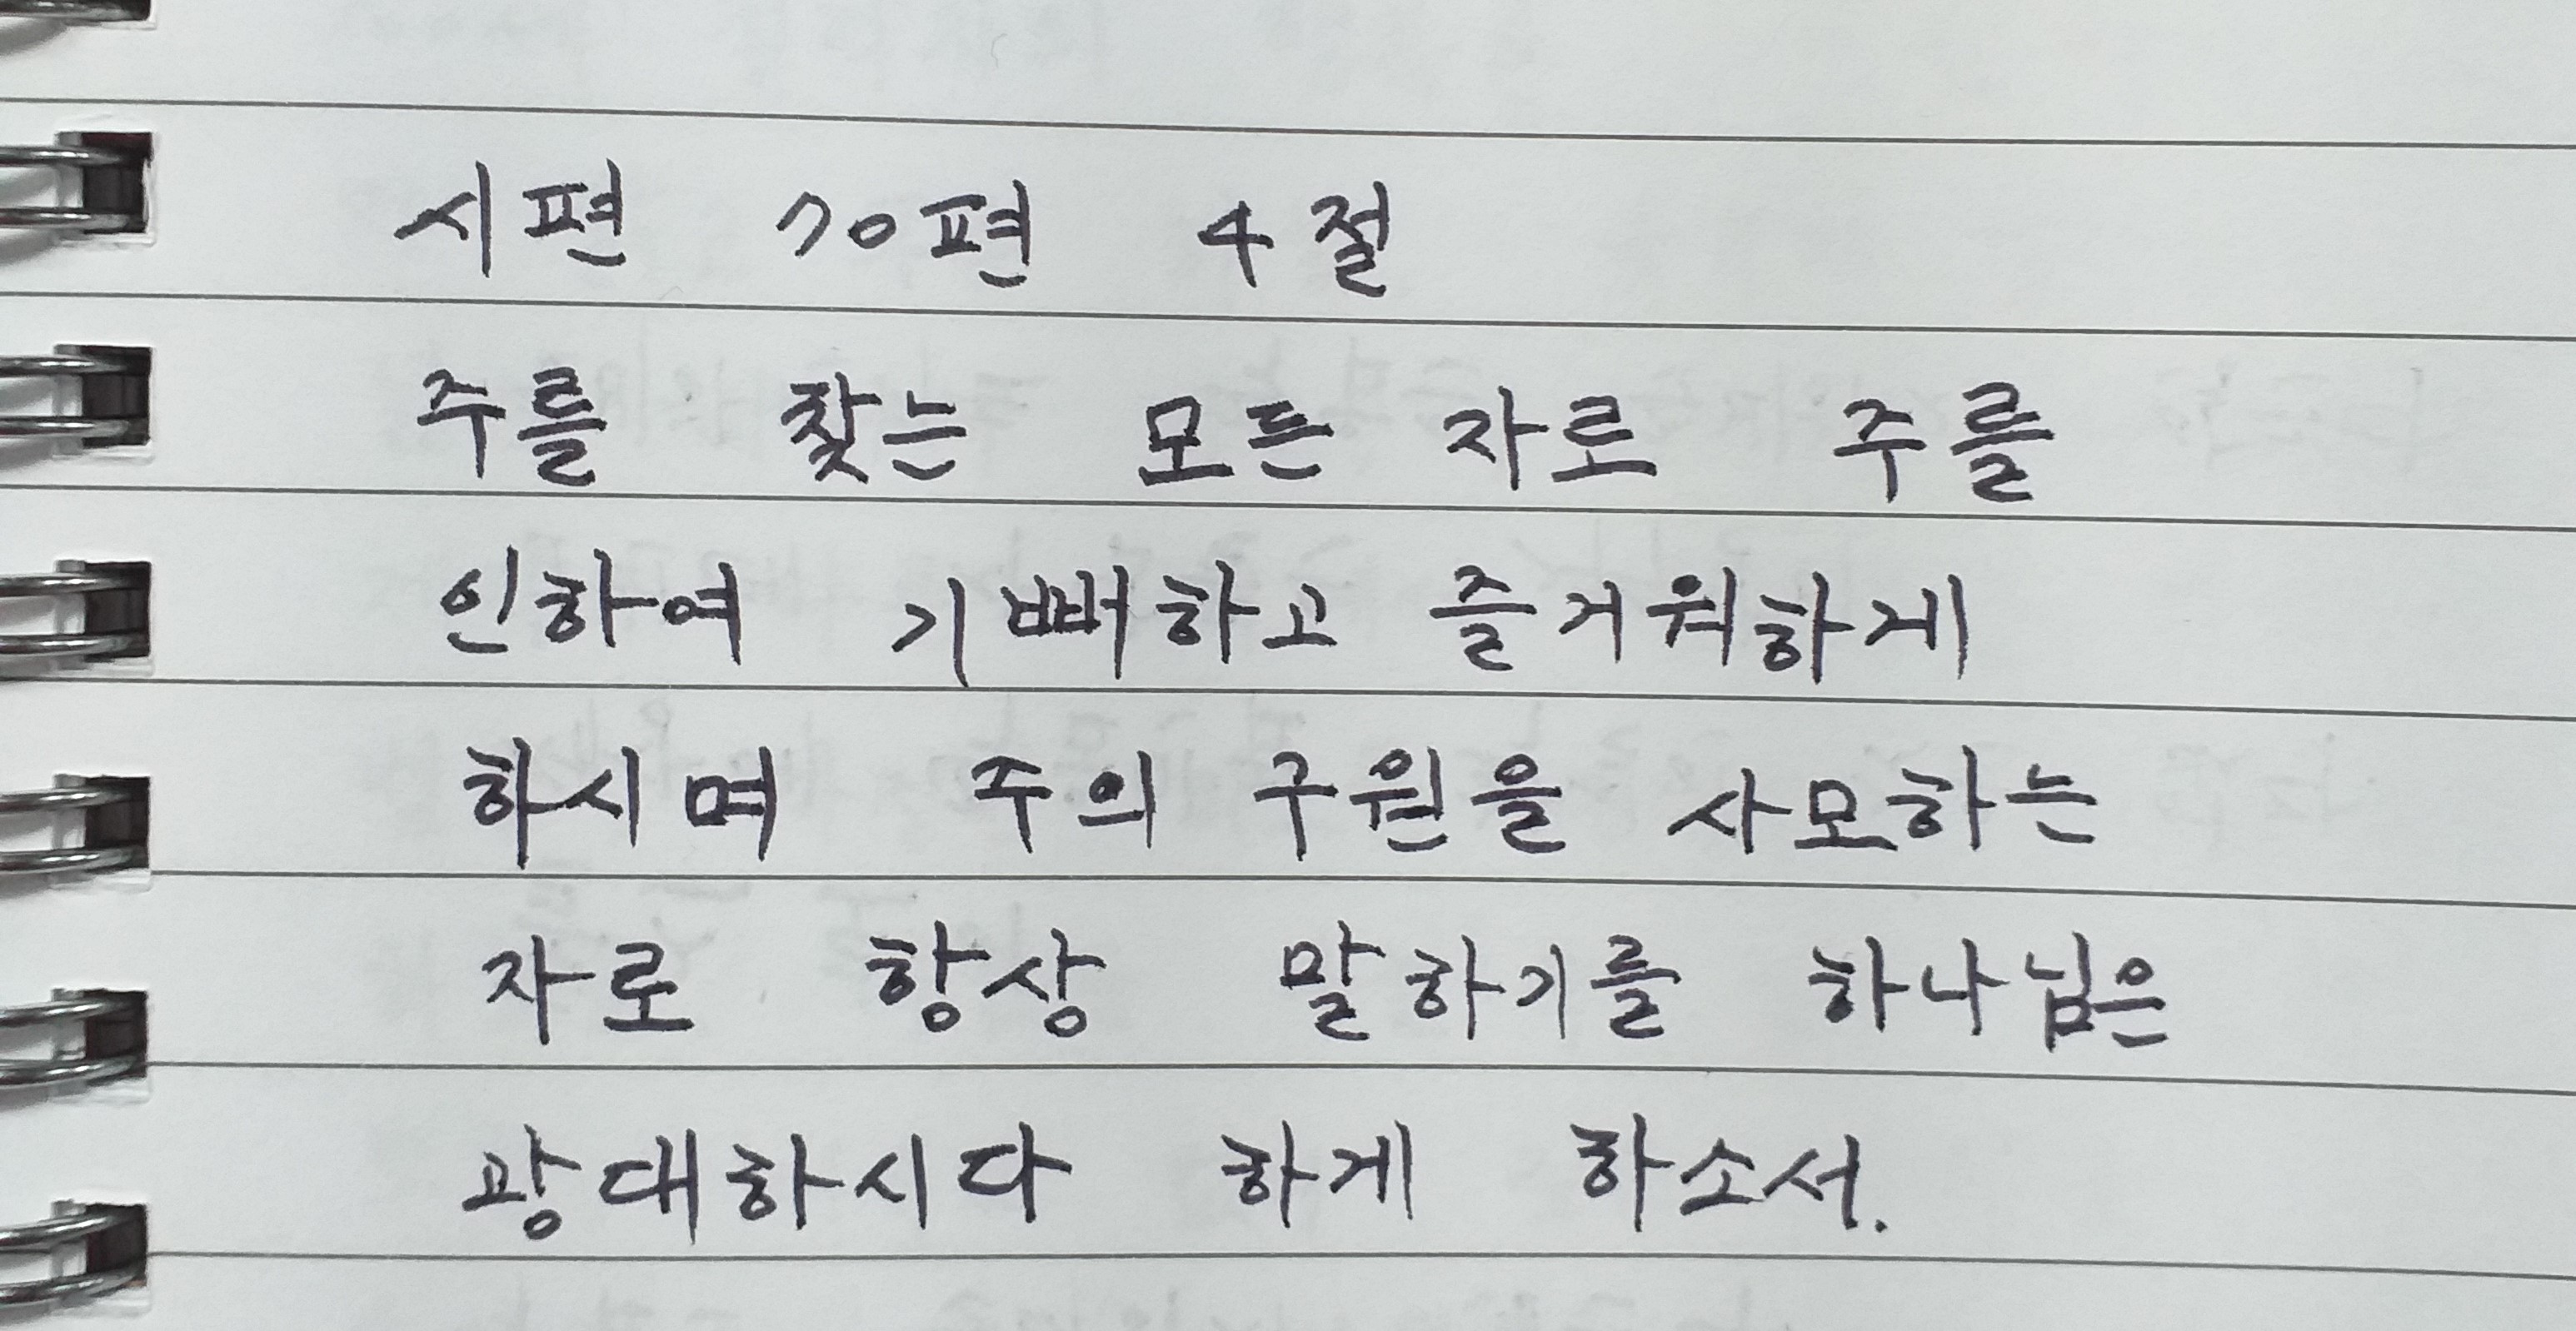 시편 70편 4절
주를 찾는 모든 자로 주를
인하여 기뻐하고 즐거워하게
하시며 주의 구원을 사모하는
자로 항상 말하기를 하나님은
광대하시다 하게 하소서.